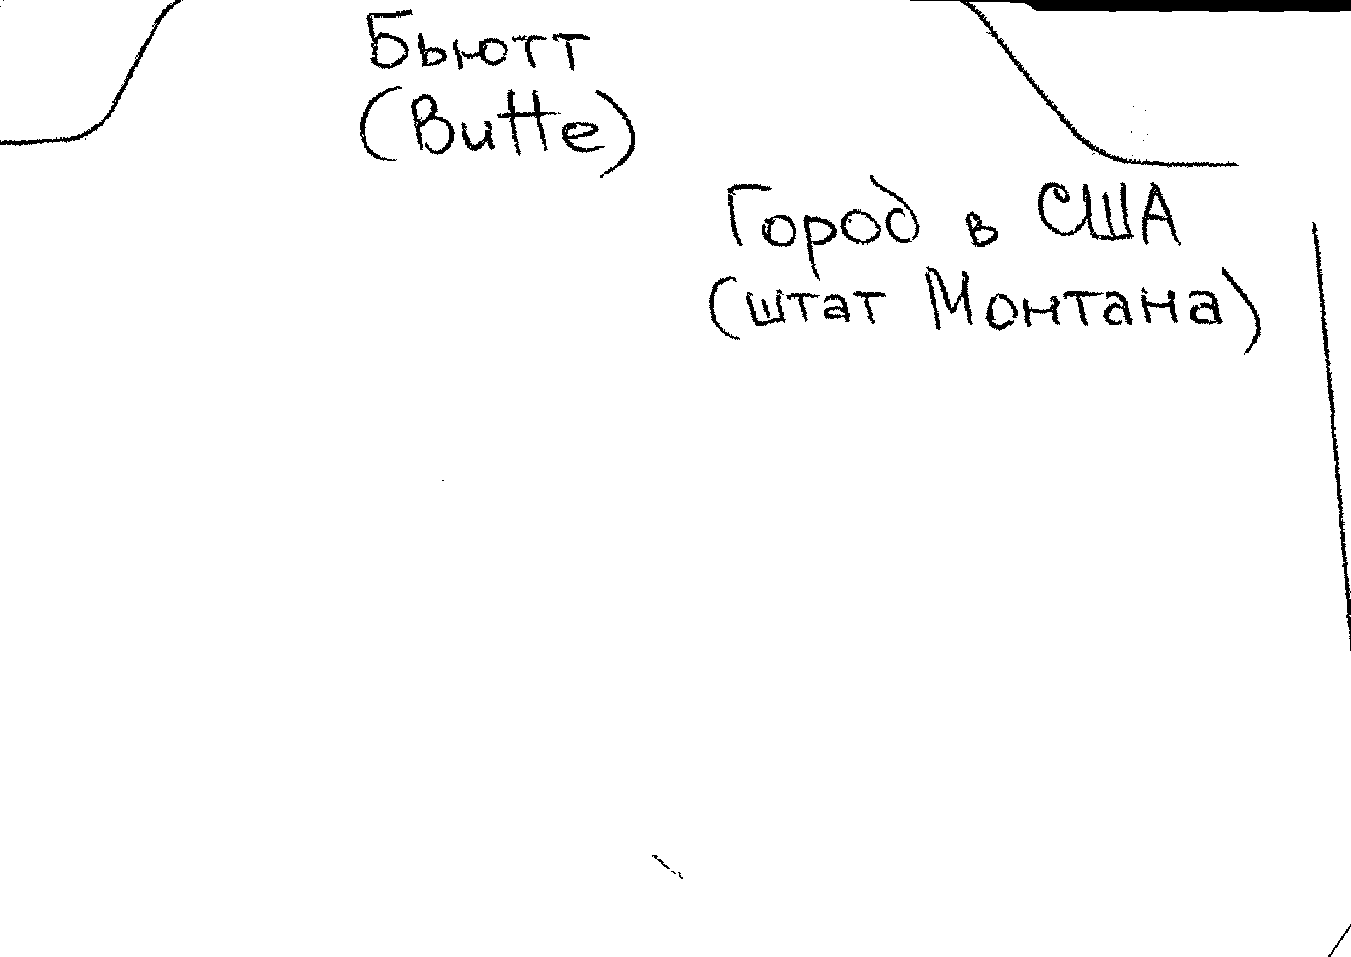 Бьютт
(Butte)
Город в США
(штат Монтана)